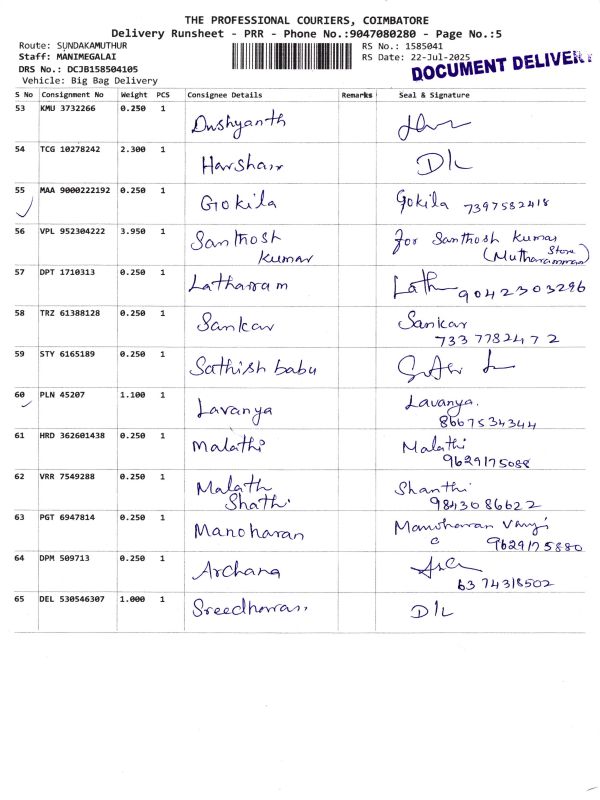 THE PROFESSIONAL COURIERS, COIMBATORE
Delivery Runsheet - PRR - Phone No.:9047080280 - Page No.:5
Route: SUNDAKAMUTHUR
Staff: MANIMEGALAI
DRS No.: DCJB158504105
Vehicle: Big Bag Delivery
RS No.: 1585041
RS Date: 22-Jul-2025
DOCUMENT DELIVER
S No Consignment No Weight PCS Consignee Details Remarks Seal & Signature
53 KMU 3732266 0.250 1 Dushyanth
54 TCG 10278242 2.300 1 Harshan D/L
55 MAA 9000222192 0.250 1 Gokila Gokila 7397582418
56 VPL 952304222 3.950 1 Santhosh Kumar for Santhosh Kumar
(Mutharamman Store)
57 DPT 1710313 0.250 1 Latharam Lath 9042303296
58 TRZ 61388128 0.250 1 Sankar Sankar
7337782472
59 STY 6165189 0.250 1 Sathish babu
60 PLN 45207 1.100 1 Lavanya Lavanya.
8667534344
61 HRD 362601438 0.250 1 Malathi Malathi
9629175088
62 VRR 7549288 0.250 1 Malath Shathi Shanthi
9843086622
63 PGT 6947814 0.250 1 Manoharan Manoharan
9629175880
64 DPM 509713 0.250 1 Archana
6374318502
65 DEL 530546307 1.000 1 D/L